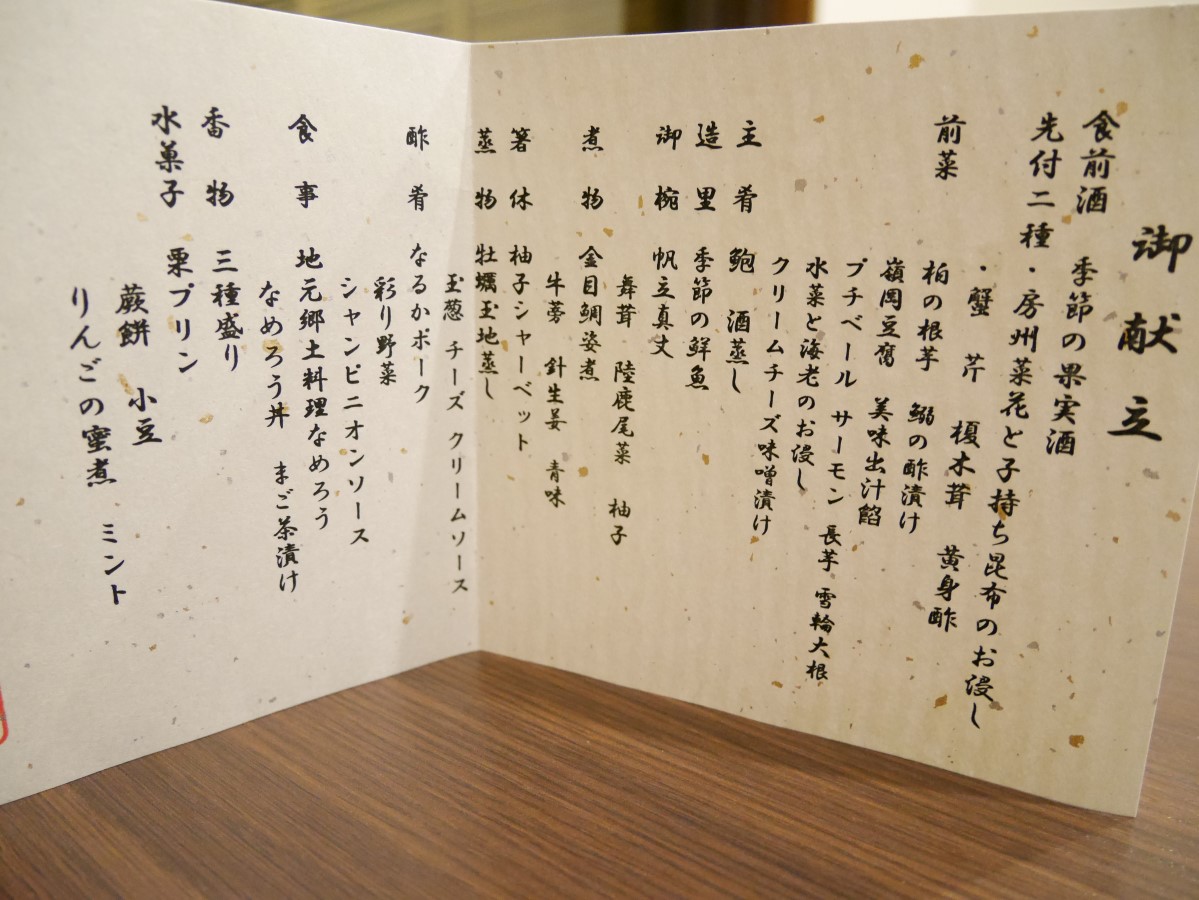 御献立
食前酒 季節の果実酒
先付二種・房州菜花と子持ち昆布のお浸し
・蟹 芹 榎木茸 黄身酢
前菜 柏の根芋 鰯の酢漬け
嶺岡豆腐 美味出汁餡
プチベール サーモン 長芋 雪輪大根
水菜と海老のお浸し
クリームチーズ味噌漬け
主肴 鮑 酒蒸し
造里 季節の鮮魚
御椀 帆立真丈
舞茸 陸鹿尾菜 柚子
煮物 金目鯛姿煮
牛蒡 針生姜 青味
箸休 柚子シャーベット
蒸物 牡蠣玉地蒸し
玉葱 チーズ クリームソース
酢肴 なるかポーク
彩り野菜
シャンピニオンソース
食事 地元郷土料理なめろう
なめろう丼 まご茶漬け
香物 三種盛り
水菓子 栗プリン
蕨餅 小豆
りんごの蜜煮 ミント